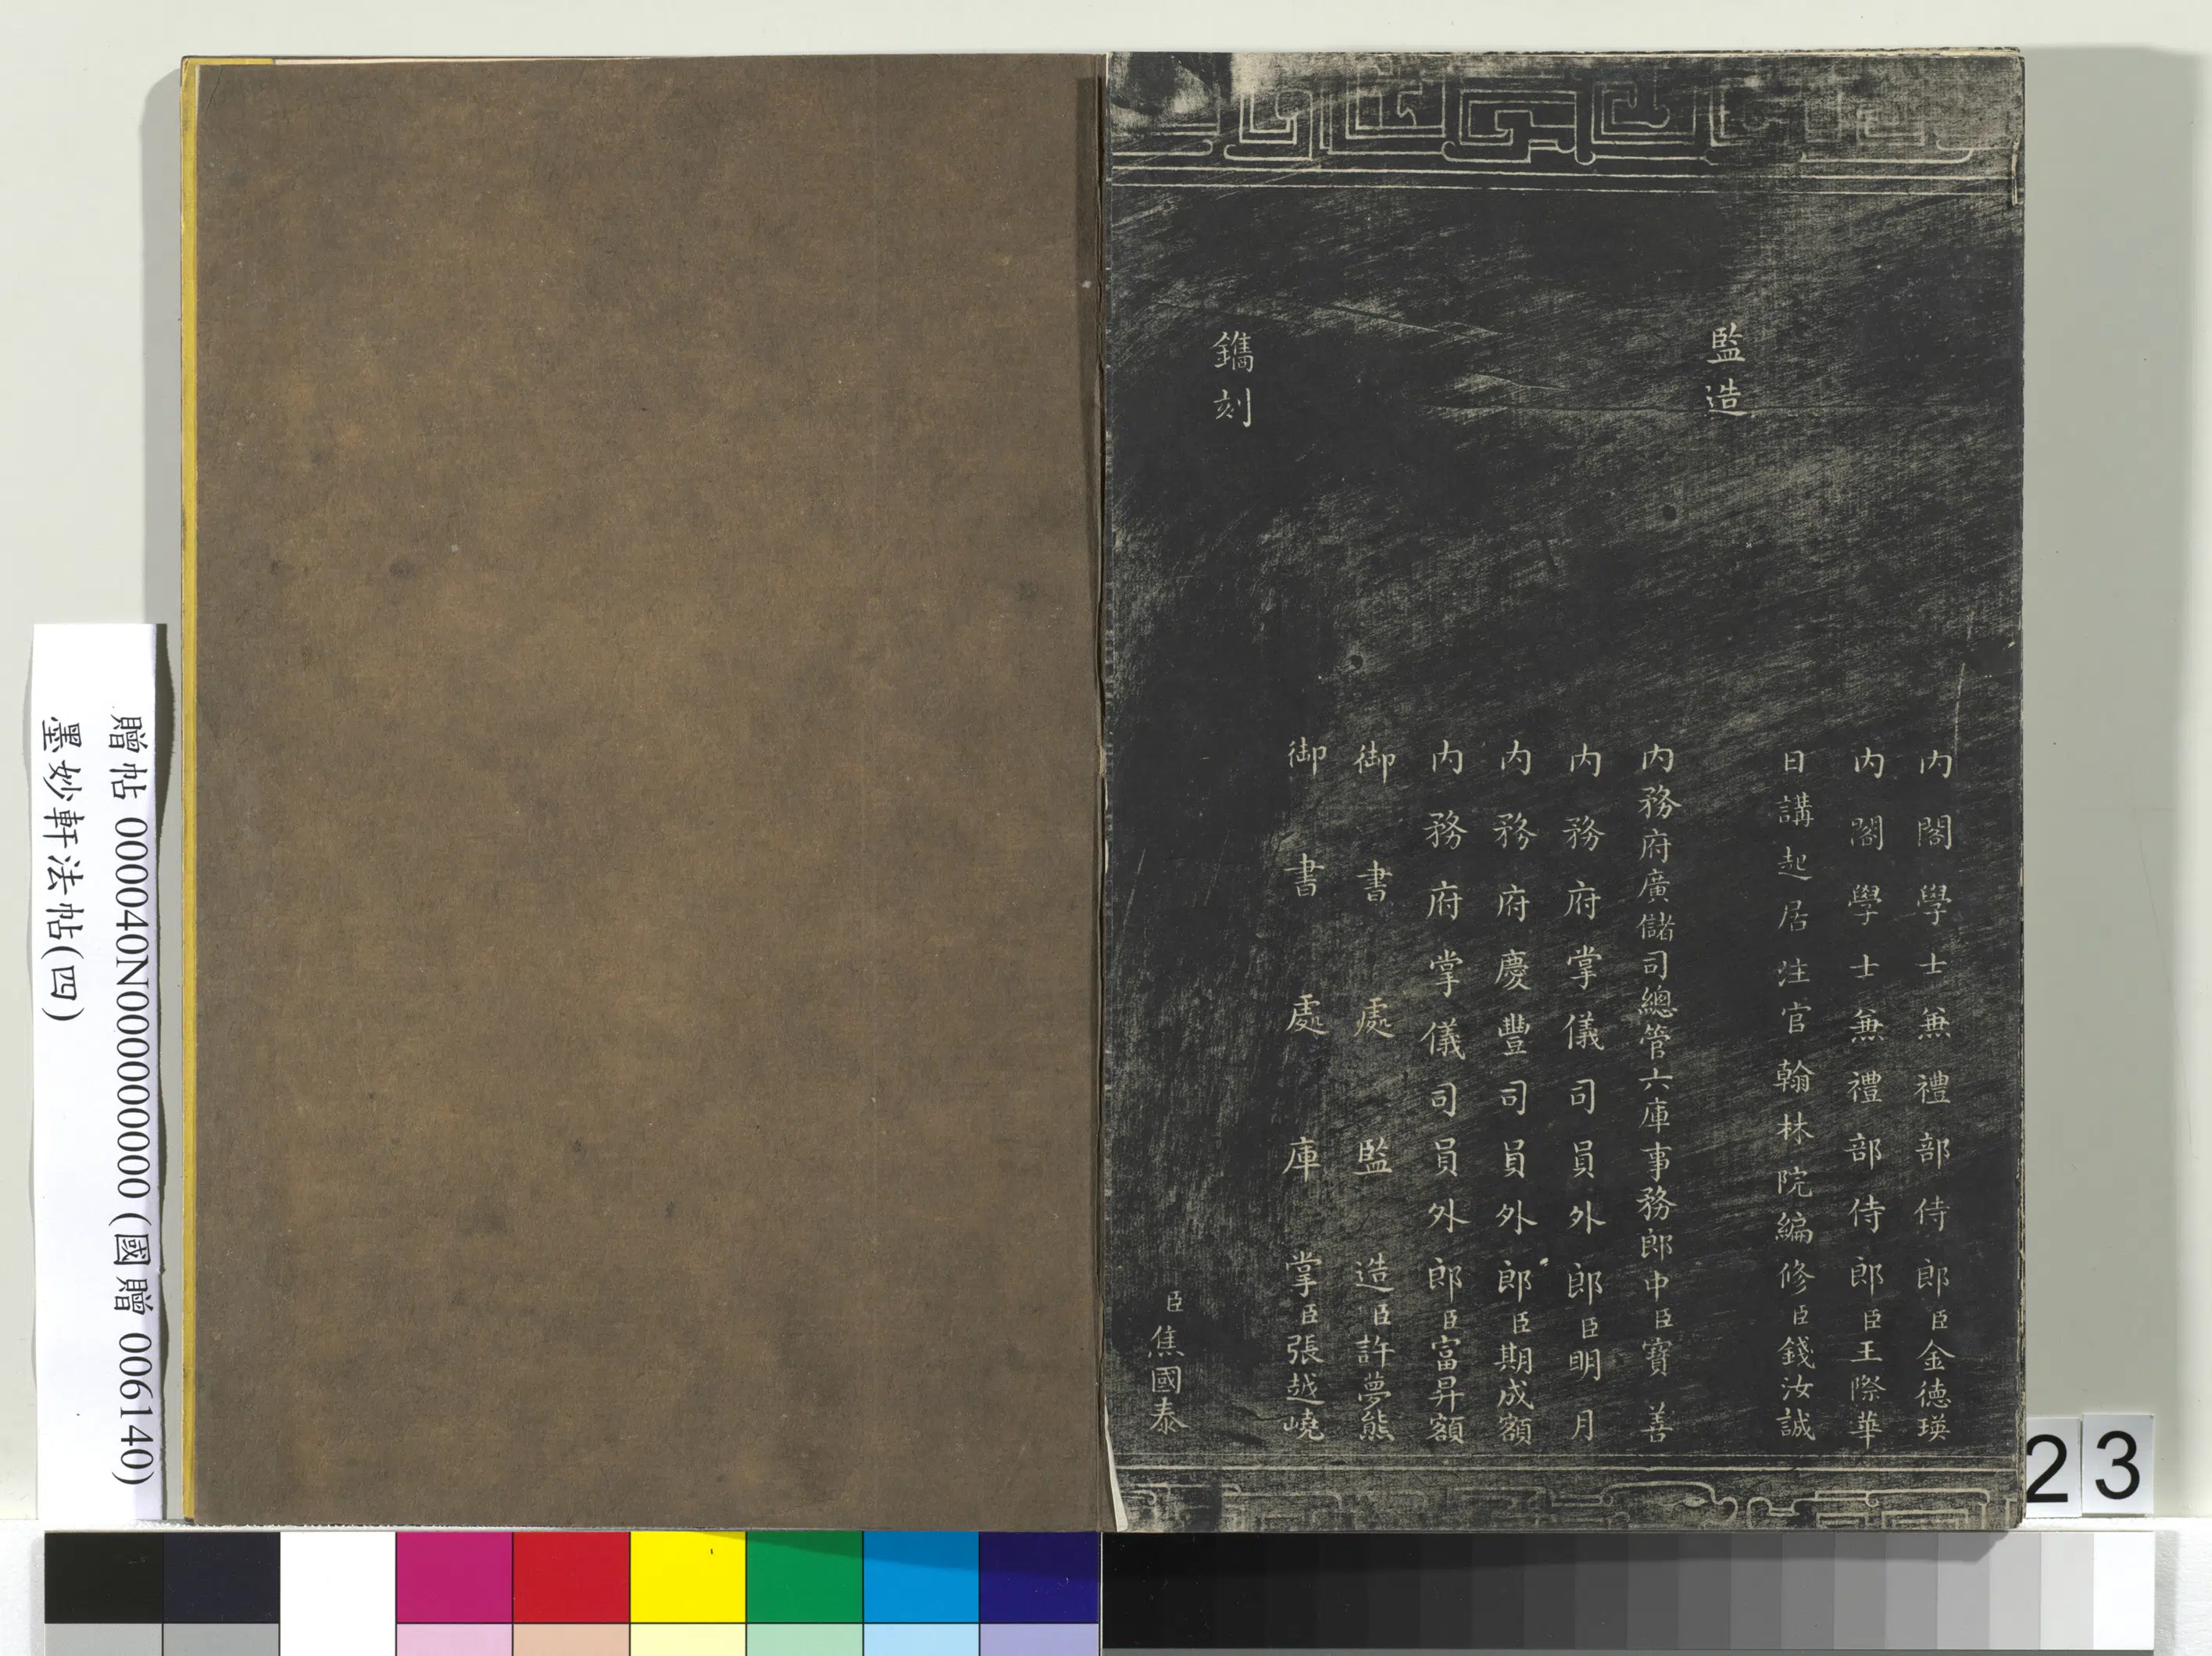 內閣學士兼禮部侍郎臣金德瑛
內閣學士兼禮部侍郎臣王際華
日講起居注官翰林院編修臣錢汝誠
監造
內務府廣儲司總管六庫事務郎中臣寶善
內務府掌儀司員外郎臣明月
內務府慶豐司員外郎臣期成額
內務府掌儀司員外郎臣富昇額
御書處監造臣許夢熊
御書處庫掌臣張越嶢
鐫刻
臣焦國泰
贈帖 000040N000000000 (國贈 006140)
墨妙軒法帖(四)
23